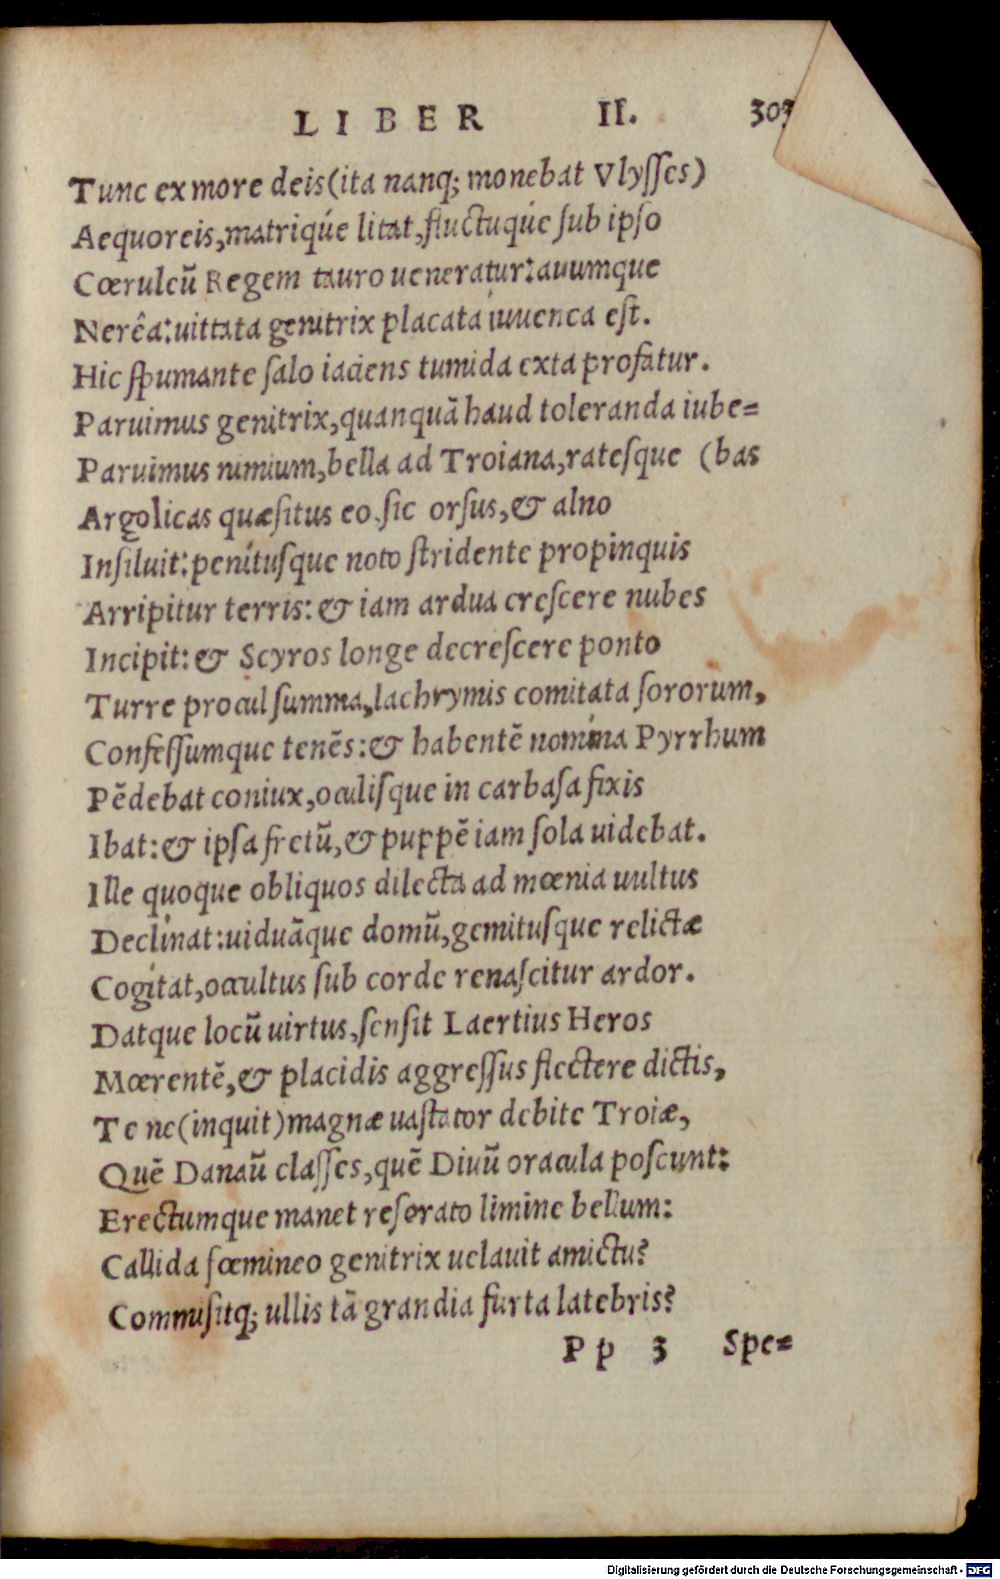 LIBER II. 303
Tunc ex more deis (ita nanq; monebat Vlysses)
Aequoreis, matriqúe litat, fluctuqúe sub ipso
Cœruleũ Regem tauro ueneratur: auumque
Nerêa: uittata genitrix placata iuuenca est.
Hic spumante salo iaciens tumida exta profatur.
Paruimus genitrix, quanquā haud toleranda iube=
Paruimus nimium, bella ad Troiana, ratesque (bas
Argolicas quæsitus eo. sic orsus, & alno
Insiluit: penitusque noto stridente propinquis
Arripitur terris: & iam ardua crescere nubes
Incipit: & Scyros longe decrescere ponto
Turre procul summa, lachrymis comitata sororum,
Confessumque tenẽs: & habentẽ nomina Pyrrhum
Pẽdebat coniux, oculisque in carbasa fixis
Ibat: & ipsa fretũ, & puppẽ iam sola uidebat.
Ille quoque obliquos dilecta ad mœnia uultus
Declinat: uiduāque domũ, gemitusque relictæ
Cogitat, occultus sub corde renascitur ardor.
Datque locũ uirtus, sensit Laertius Heros
Mœrentẽ, & placidis aggressus flectere dictis,
Te ne (inquit) magnæ uastator debite Troiæ,
Quẽ Danaũ classes, quẽ Diuũ oracula poscunt:
Erectumque manet reserato limine bellum:
Callida fœmineo genitrix uelauit amictu?
Commisitq; ullis tā grandia furta latebris?
Pp 3 Spe=
Digitalisierung gefördert durch die Deutsche Forschungsgemeinschaft - DFG